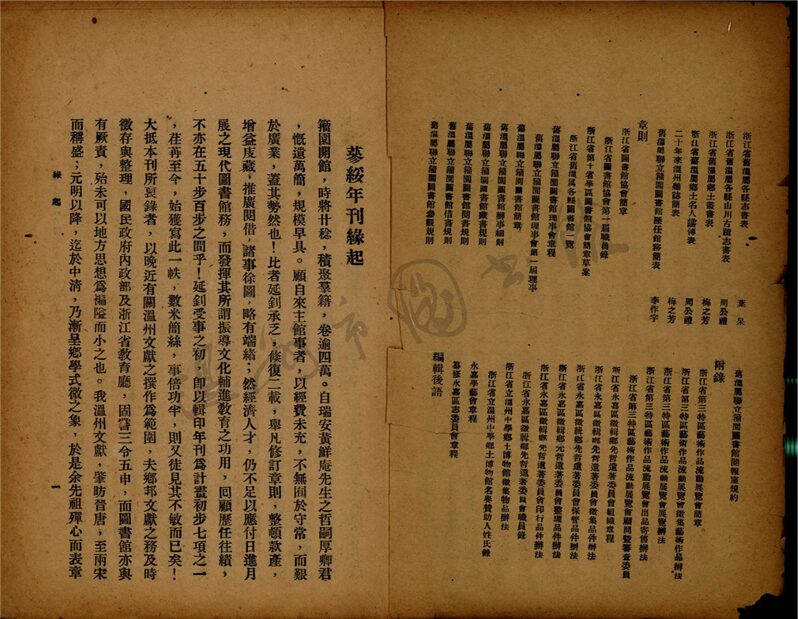 浙江省舊溫屬各縣志書表
浙江省舊溫屬各縣山川古蹟志書表 葉杲
浙江省舊溫屬鄉土志書表 周公禮
浙江省舊溫屬鄉土名人譜傳表 梅之芳
二十年來溫州雜誌調表 周公禮
舊溫屬聯立籀園圖書館歷任館務簡表 梅之芳
李作宇
章則
浙江省圖書館協會簡章
浙江省圖書館協會第一屆職員錄
浙江省第十省學區圖書館協會簡章草案
浙江省舊溫屬各縣圖書館一覽
舊溫屬聯立籀園圖書館理事會章程
舊溫屬聯立籀園圖書館理事會第一屆理事
舊溫屬聯立籀園圖書館簡章
舊溫屬聯立籀園圖書館辦事細則
舊溫屬聯立籀園圖書館藏書規則
舊溫屬聯立籀園圖書館閱書規則
舊溫屬聯立籀園圖書館借書規則
舊溫屬聯立籀園圖書館參觀規則
舊溫屬聯立籀園圖書館閱報室規約
附錄
浙江省第三特區藝術作品流動展覽會簡章
浙江省第三特區藝術作品流動展覽會徵集藝術作品辦法
浙江省第三特區藝術作品流動展覽會展覽辦法
浙江省第三特區藝術作品流動展覽會出品寄售辦法
浙江省第三特區藝術作品流動展覽會顧問暨審查委員
浙江省永嘉區徵輯鄉先哲遺著委員會組織章程
浙江省永嘉區徵輯鄉先哲遺著委員會徵集品件辦法
浙江省永嘉區徵輯鄉先哲遺著委員會保管品件辦法
浙江省永嘉區徵輯鄉先哲遺著委員會整理品件辦法
浙江省永嘉區徵輯鄉先哲遺著委員會印行品件辦法
浙江省永嘉區徵輯鄉先哲遺著委員會職員錄
浙江省立溫州中學鄉土博物館徵集物品辦法
浙江省立溫州中學鄉土博物館名譽贊助人姓氏錄
永嘉學藝會章程
纂修永嘉區志委員會章程
編輯後語
蔘綏年刊緣起
籀園開館，時將廿稔，積聚羣籍，卷逾四萬。自瑞安黃鮮庵先生之哲嗣厚卿君
，慨遺萬簡，規模早具。顧自來主館事者，以經費未充，不無囿於守常，而艱
於廣業，蓋其勢然也！比者延釗承乏，倏復二載，舉凡修訂章則，整頓款產，
增益庋藏，推廣閱借，諸事徐圖，略有端緒；然經濟人才，仍不足以應付日進月
展之現代圖書館務，而發揮其所謂振導文化輔進敎育之功用，囘顧歷任往績，
不亦在五十步百步之間乎！延釗受事之初，卽以輯印年刊爲計畫初步七項之一
，荏苒至今，始獲寫此一帙，數米簡絲，事倍功半，則又徒見其不敏而已矣！
大抵本刊所裒錄者，以晚近有關溫州文獻之撰作爲範圍，夫鄉邦文獻之務及時
徵存與整理，國民政府內政部及浙江省敎育廳，固嘗三令五申，而圖書館亦與
有厥責，殆未可以地方思想爲褊隘而小之也。我溫州文獻，肇昉晉唐，至兩宋
而稱盛；元明以降，迄於中淸，乃漸呈鄉學式微之象，於是余先祖殫心而表章
緣起
一